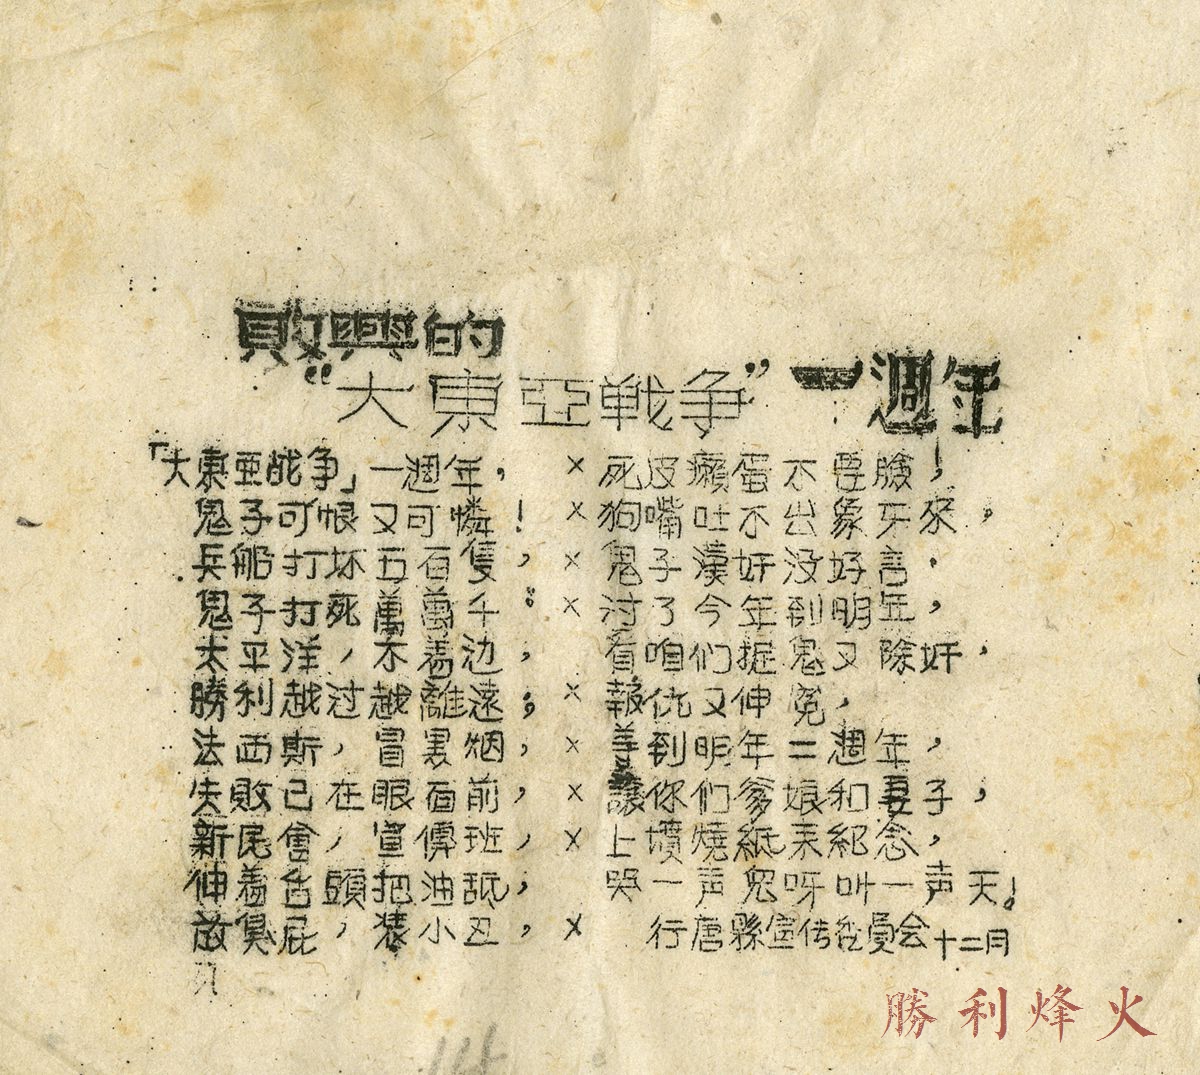 敗興的
“大東亞戰争”一週年
「大東亜战争」一週年，
鬼子可恨又可憐！
兵船打坏五百隻，
鬼子打死萬萬千：
太平洋，不着边，
勝利越过越離遠；
法西斯，冒黑烟，
失敗已在眼面前，
新民會，宣傳班，
伸着舌頭把油舐，
放臭屁，裝小丑，
死皮癩蛋不要臉，
狗嘴吐不出象牙來，
鬼子漢奸没好言，
过了今年到明年，
看咱们掘鬼又除奸，
報仇又伸冤，
等到明年二週年，
讓你们爹娘和妻子，
上墳燒紙来紀念，
哭一声鬼呀叫一声天！
行唐縣宣传委員会十二月
勝利烽火